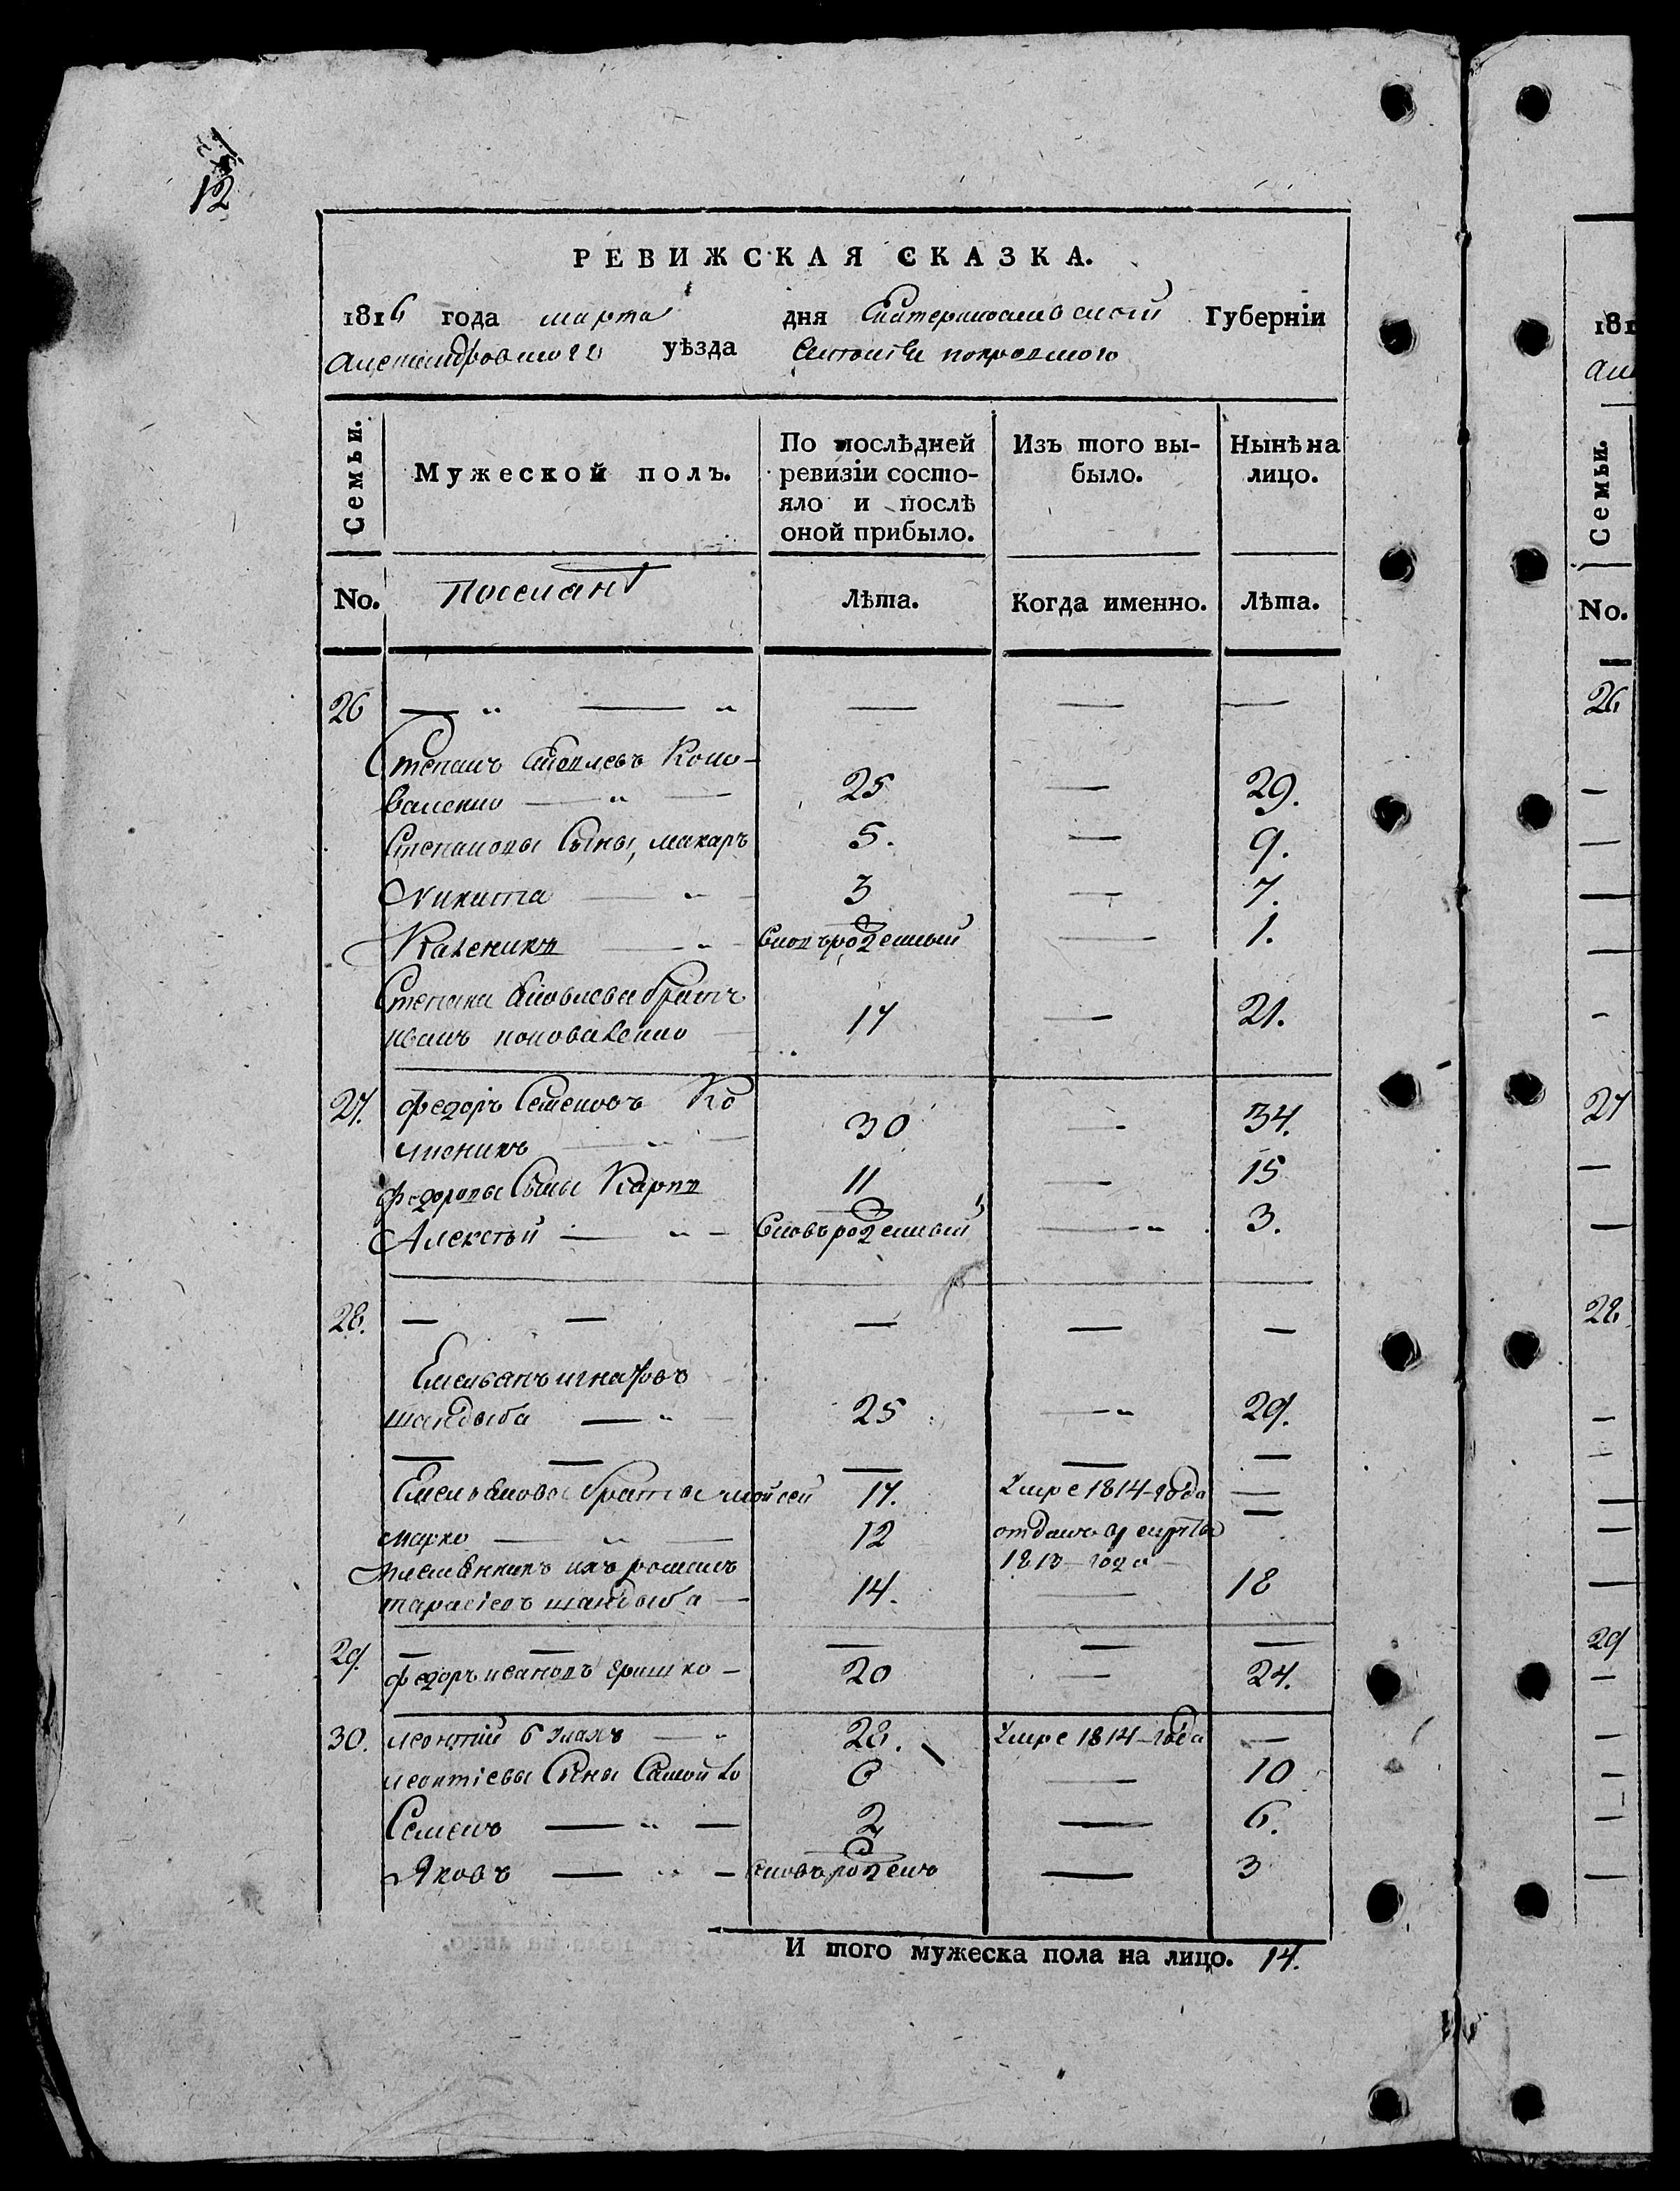 12
РЕВИЖСКАЯ СКАЗКА.
1816 года марта дня Екатеринославской Губерніи
Александровского уѣзда покровского
Семьи.
Мужеской полъ.
По послѣдней ревизіи состо-
яло и послѣ
оной прибыло.
Изъ того вы-
было.
Нынѣ на
лицо.
No. Поселянъ Лѣта. Когда именно. Лѣта.
26 — „ — „ — — —
Степанъ Яковлевъ Коно-
валенко — „ — 25 — 29.
Степановы Сыны, макаръ 5. — 9.
Никита — „ — 3 — 7.
Каленикъ — „ — вновърожденный — 1.
Степана Яковлева братъ
иванъ коноваленко — 17 — 21.
27. федоръ Семеновъ Ко
лненикъ — „ — 30 — 34.
федоровы Сыны Карпъ 11 — 15
Алексѣй — „ — вновърожденный — „ 3.
28. — — — — —
Емельянъ игнатовъ
шандыба — „ — 25 — „ 29.
— — — — —
Емельяновы братья мойсей 17. Умре 1814-года —
марко — „ — 12 отданъ в рекруты —
1813-года —
племянникъ ихъ романъ
тарасіевъ шандыба — 14. — 18
29. — — — — —
федоръ ивановъ яришко — 20 — 24.
30. леонтій — „ 28. Умре 1814-года —
леонтіевы Сыны Самойло 6 — 10
Семенъ — „ — 2 — 6.
Яковъ — „ — вновърожденъ — 3
И того мужеска пола на лицо. 14.
181
Але
Семьи.
No.
26
27
28
29